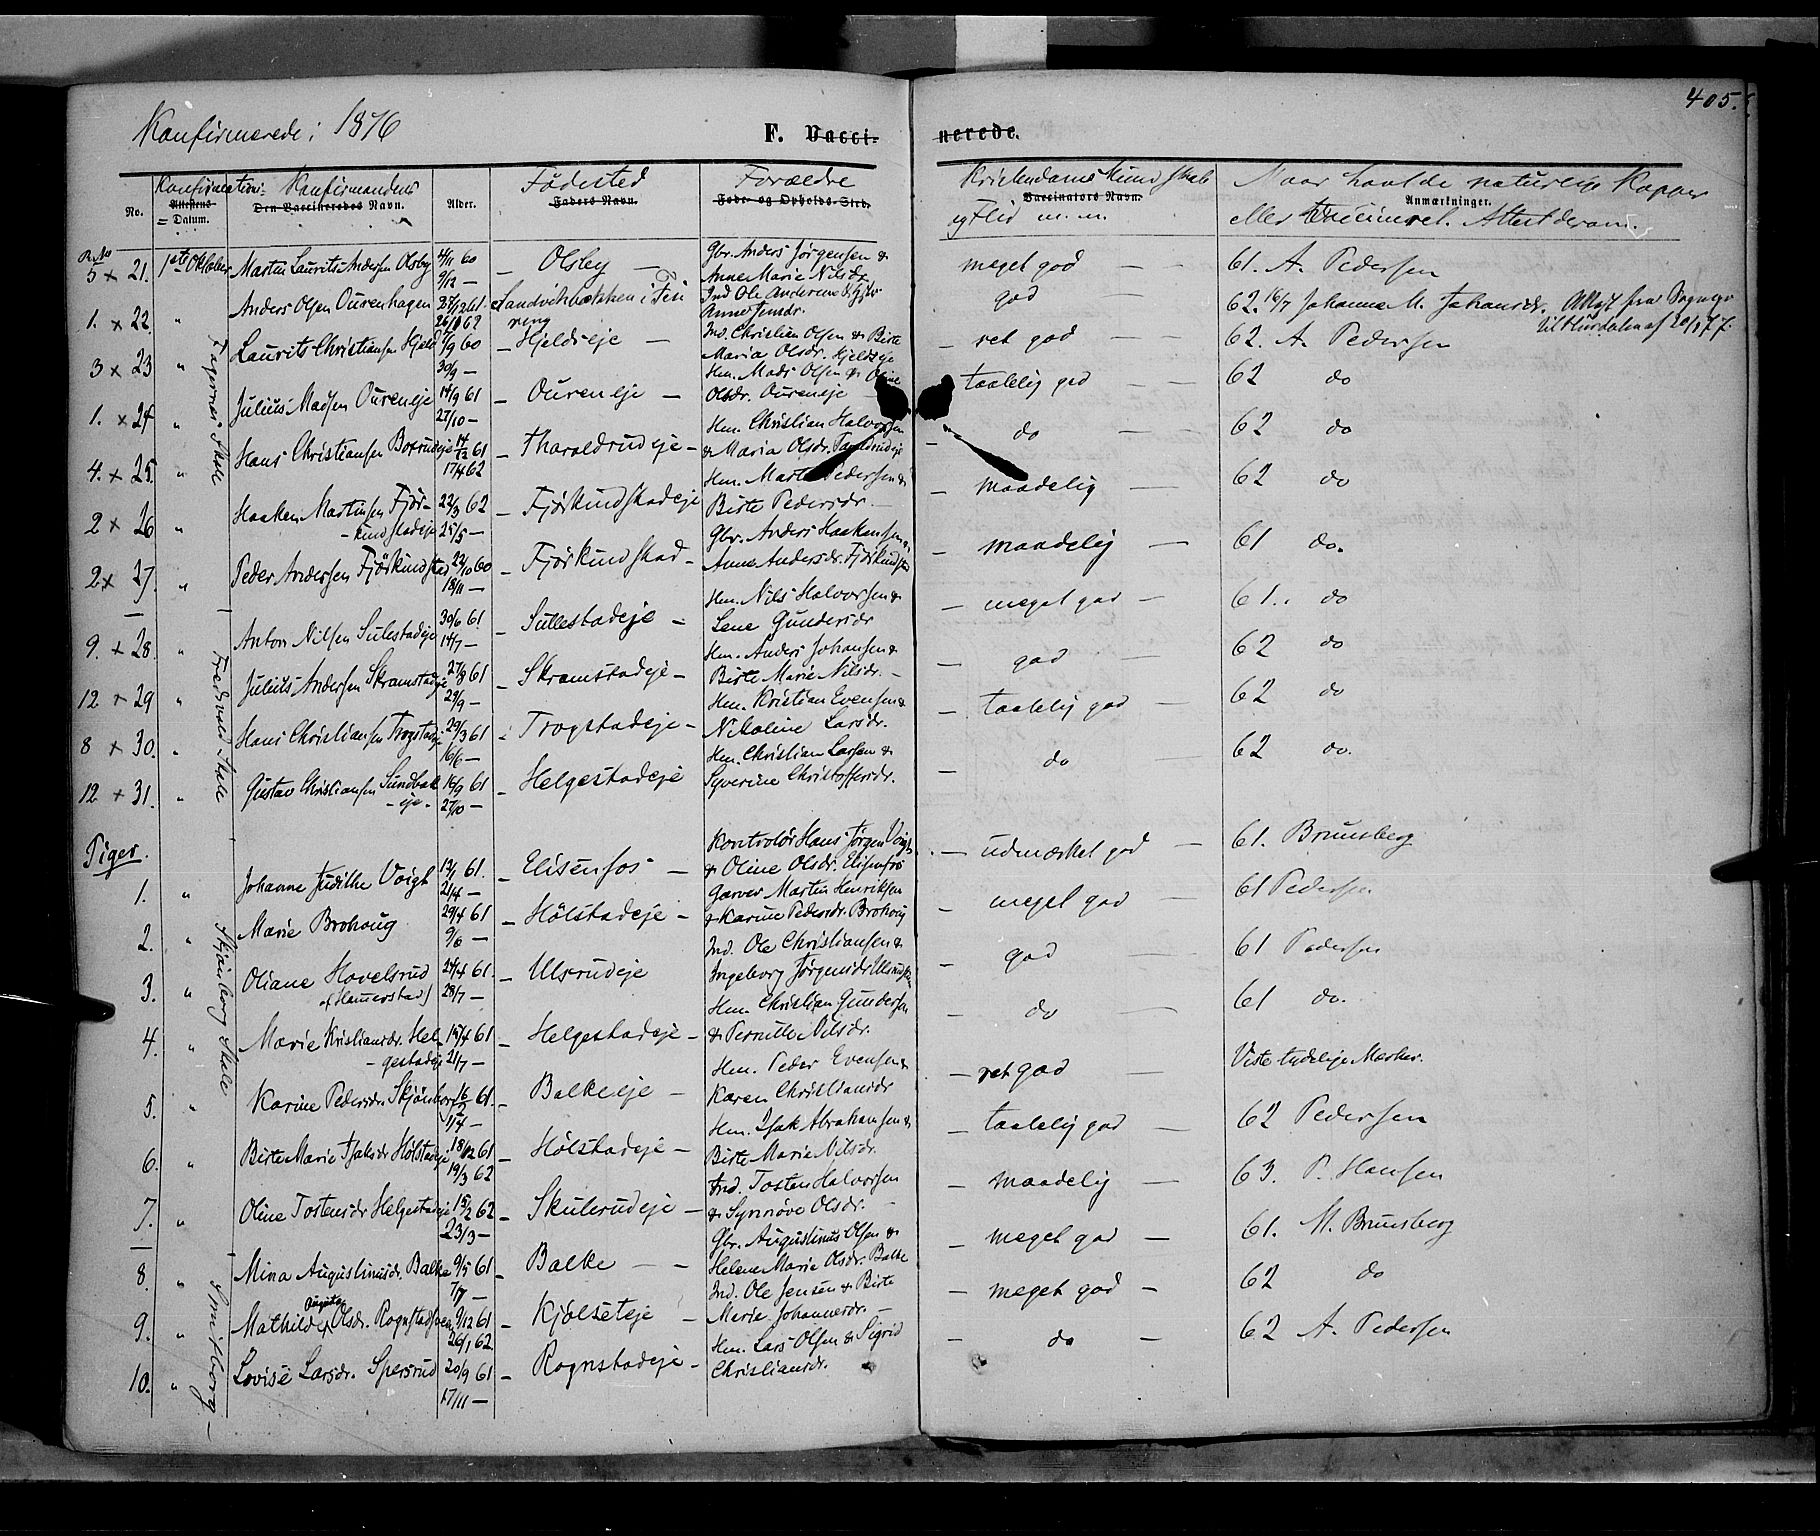 405.
Konfirmerede i 1876
F. Vacci-nerede.
No. Konfirmations Attestens Datum. Konfirmandens Den Vaccineredes Navn. Alder. Fødested Faders Navn. Forældre Føde- og Opholds-Sted. Kristendomskundskab og Flid m. m. Vaccinators Navn. Naar havt de naturlige Kopper eller vaccineret. Attest derom. Anmærkninger.
5 × 21. 1ste Oktober Martin Laurits Andersen Olsby 4/11 60 9/12 — Olsby — Gbr. Anders Jørgensen & Anne Marie Nilsdr. meget god — 61. A. Pedersen
1. × 22. " Anders Olsen Ourenhagen 27/12 61. 26/1 62 Sandvikbakken i Fering Ind. Ole Andersen & Anne Jensdr. god 62. 16/7 Johanna M. Johansdr. Attest fra Sognepr. til Hurdalen af 20/1 77.
3 × 23 " Laurits Christiansen Hjeld 7/9 60 30/9 — Hjeldseje — Ind. Christian Olsen & Birte Maria Olsdr. Hjeldseje — ret god — 62. A. Pedersen
1. × 24 " Julius Madsen Oureneje 14/9 61 27/10 — Oureneje — Hm. Mads Olsen & Oline Olsdr. Oureneje — taalelig god — 62 do
4. × 25. " Hans Christiansen Borrudeje 14/12 61 17/4 62 — Tharaldrudeje — Hm. Christian Halvorsen & Maria Olsdr. — do 62 do
2 × 26 " Haaken Martinsen Fjørkindstadeje 22/3 62 25/5 — Fjørkindstadeje Hm. Martin Pedersen & Birte Pedersdr. — maadelig 62 do
2 × 27. " Peder Andersen Fjørkindstad 22/10 60 18/11 — Fjørkindstad — Gbr. Anders Haakensen & Anne Andersdr. Fjørkindstad — maadelig — 61 do.
9. × 28. " Anton Nilsen Sulestadeje 30/6 61 14/7 — Sullestadeje — Hm. Nils Halvorsen & Lene Gundersdr — meget god — 61. do
12 × 29 " Julius Andersen Skramstadeje 27/8 61 29/9 — Skramstadeje — Hm. Anders Johansen & Birte Marie Nilsdr. — god — 62 do
8 × 30. " Hans Christiansen Trogstadeje 29/3 61 16/6 — Trogstadeje — Hm. Kristian Evensen & Nikoline Larsdr. — taalelig god — 62 do
12 × 31. " Gustav Christiansen Sundbakeje 16/9 61 27/10 — Helgestadeje Hm. Christian Larsen & Syverine Christoffersdr. — do — 62 do.
Fagernæs Skole
Fredvold Skole
Piger.
1. " Johanne Judithe Voigt 13/1 61. 21/4 — Elisenfos — Kontrolør Hans Jørgen Voigt & Oline Olsdr. Elisenfos — udmærket god — 61. Brunsberg
2. " Marie Brohoug 29/4 61 9/6 — Hølstadeje — Garver Martin Henriksen & Karine Pedersdr. Brohoug — meget god — 61 Pedersen
3. " Oliane Hovelsrud 24/4 61. 28/7 — Ulsrudeje Ind. Ole Christiansen & Ingeborg Jørgensdr — god — 61 Pedersen
4. " Marie Kristiansdr. Helgestadeje 15/4 61 21/7 — Helgestadeje — Hm. Christian Gundersen & Pernille Nilsdr. — do — 61 do.
5. " Karine Pedersdr. Skjønborg 16/2 61. 1/4 — Balkeeje — Hm. Peder Evensen & Karen Christiansdr — ret god — Viste tydelige Mærker.
6. " Birte Marie Isaksdr Hølstadeje 18/12 61 19/3 62 — Hølstadeje — Hm. Isak Abrahamsen & Birte Marie Nilsdr. — taalelig god — 62 Pedersen
7. " Oline Tostensdr Helgestadeje 15/2 62 23/3 — Skulerudeje — Ind. Tosten Halvorsen & Synnøve Olsdr. — maadelig — 63. P. Hansen
8 " Mina Augustinusdr. Balke 9/5 61 7/7 — Balke — Gbr. Augustinus Olsen & Helene Marie Olsdr. Balke — meget god — 61. M. Brunsberg
9. " Mathilde Augusta Olsdr. Rognstadsveen 9/12 61 26/1 62 — Kjølseteje — Ind. Ole Jensen & Birte Marie Johannesdr. — meget god — 62 do
10. " Lovise Larsdr. Spersrud 20/9 61 17/11 — Rognstadeje — Hm. Lars Olsen & Sigrid Christiansdr. — do — 62 A. Pedersen
Skjønborg Skole
Smidtborg —